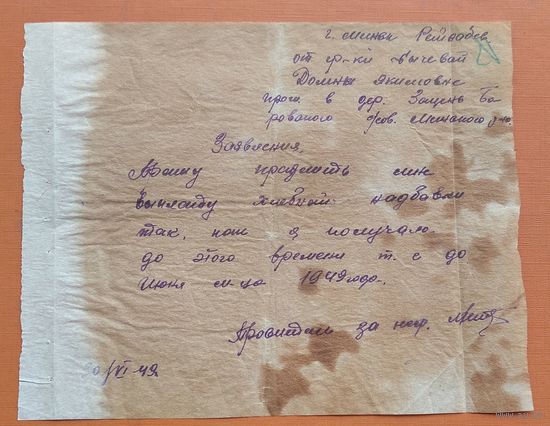 г. Минск Райсобес
от гр-ки
Домны Акимовне
прож в дер. Зацень Бо-
ровского с/сов. Минского р-на
Заявления
Прошу продлить мне
выплату хлебной надбавки
так, как я получаю
до этого времени т. е до
Июня м-ца 1949года.
Просител за нег.
20/VI 49г